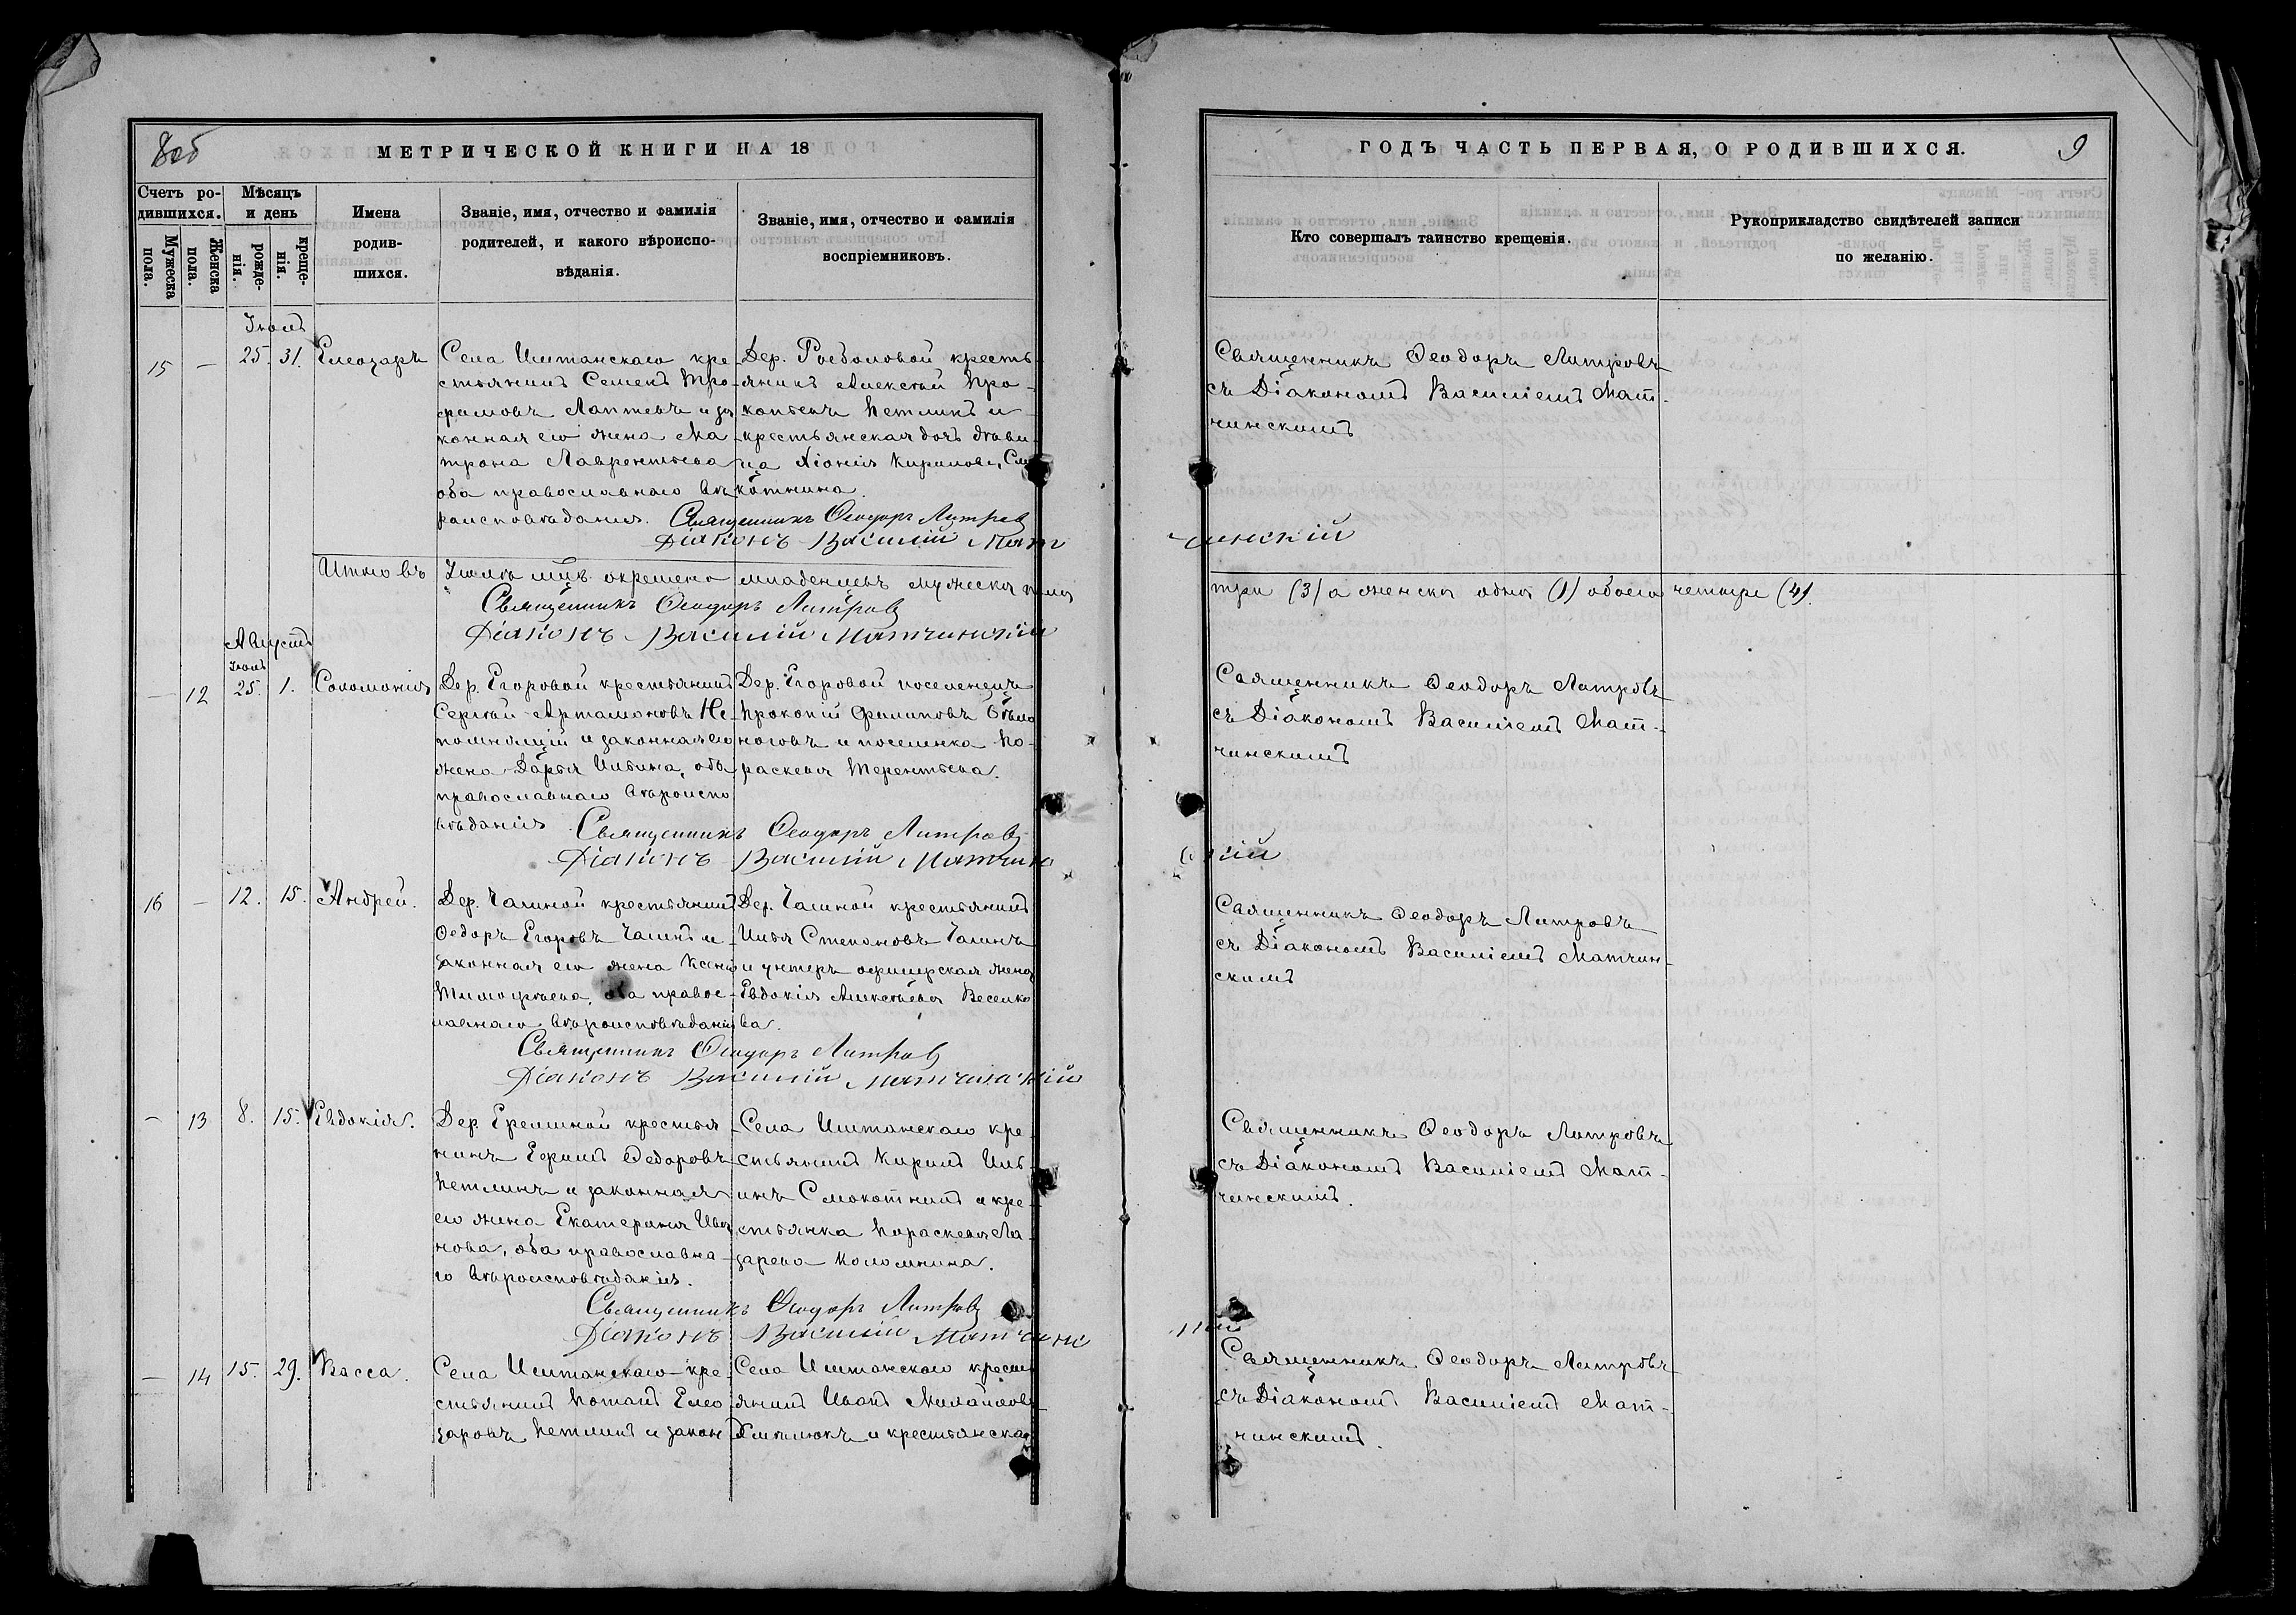 8об
МЕТРИЧЕСКОЙ КНИГИ НА 18
Счетъ ро-
дившихся.
Мужеска
пола.
Женска
пола.
Мѣсяцъ
и день
рожде-
нія.
креще-
нія.
Имена
родив-
шихся.
Званіе, имя, отчество и фамилія
родителей, и какого вѣроиспо-
вѣданія.
Званіе, имя, отчество и фамилія
воспріемниковъ.
ГОДЪ ЧАСТЬ ПЕРВАЯ, О РОДИВШИХСЯ.
9
Кто совершалъ таинство крещенія.
Рукоприкладство свидѣтелей записи
по желанію.
Іюль
15 — 25. 31. Елеозаръ
Села Иштанскаго кре-
стьянинъ Семенъ Тро-
фимовъ Лаптевъ и за
конная его жена Ма-
трона Лаврентьева
оба православнаго вѣ
роисповѣданія.
Дер. крестъ
янинъ Алексѣй Про-
копьевъ Петлинъ и
крестьянская дочь дѣви-
ца Хіонія Кирилова Смо
котнина.
Священникъ Ѳеодоръ Литровъ
съ Діакономъ Василіемъ Мат-
чинскимъ
Священникъ Ѳеодоръ Литровъ
Діаконъ Василій Матчинскій
Итого въ Іюлѣ м-цѣ окрещено младенцевъ мужеска пола три (3) а женска одна (1) обоего четыре (4).
Священникъ Ѳеодоръ Литровъ
Діаконъ Василій Матчинскій
Августъ
Іюль
— 12 25. 1. Соломонія
Дер. Егоровой крестьянинъ
Сергѣй Артамоновъ Не-
помнящій и законная его
жена Дарья Ильина, оба
православнаго вѣроиспо
вѣданія
Дер. Егоровой поселенецъ
Прокопій Филиповъ Бѣло
ноговъ и поселенка Па-
раскевія Терентьева.
Священникъ Ѳеодоръ Литровъ
съ Діакономъ Василіемъ Мат-
чинскимъ
Священникъ Ѳеодоръ Литровъ
Діаконъ Василій Матчинскій
16 — 12. 15. Андрей.
Дер. Чалиной крестьянинъ
Ѳедоръ Егоровъ Чалинъ и
законная его жена Ксенія
Тимофѣева, оба правос-
лавнаго вѣроисповѣданія
Дер. Чалиной крестьянинъ
Илья Степановъ Чалинъ
и унтеръ офицерская жена
Евдокія Алексѣева Веселко
ва.
Священникъ Ѳеодоръ Литровъ
съ Діакономъ Василіемъ Матчин-
скимъ
Священникъ Ѳеодоръ Литровъ
Діаконъ Василій Матчинскій
— 13 8. 15. Евдокія.
Дер. Еремшной крестья
нинъ Ефимъ Ѳедоровъ
Петлинъ и законная
его жена Екатерина Ива
нова, оба православна-
го вѣроисповѣданія.
Села Иштанскаго кре-
стьянинъ Кирилъ Иль-
инъ Смокотнинъ и кре-
стьянка Параскевія Ла-
зарева Коломнина.
Священникъ Ѳеодоръ Литровъ
съ Діакономъ Василіемъ Мат-
чинскимъ.
Священникъ Ѳеодоръ Литровъ
Діаконъ Василій Матчинскій
— 14 15. 29. Васса.
Села Иштанскаго кре-
стьянинъ Потапъ Елео
заровъ Петлинъ и закон
Села Иштанскаго крест
янинъ Иванъ Михайловъ
и крестьянская
Священникъ Ѳеодоръ Литровъ
съ Діакономъ Василіемъ Мат-
чинскимъ.